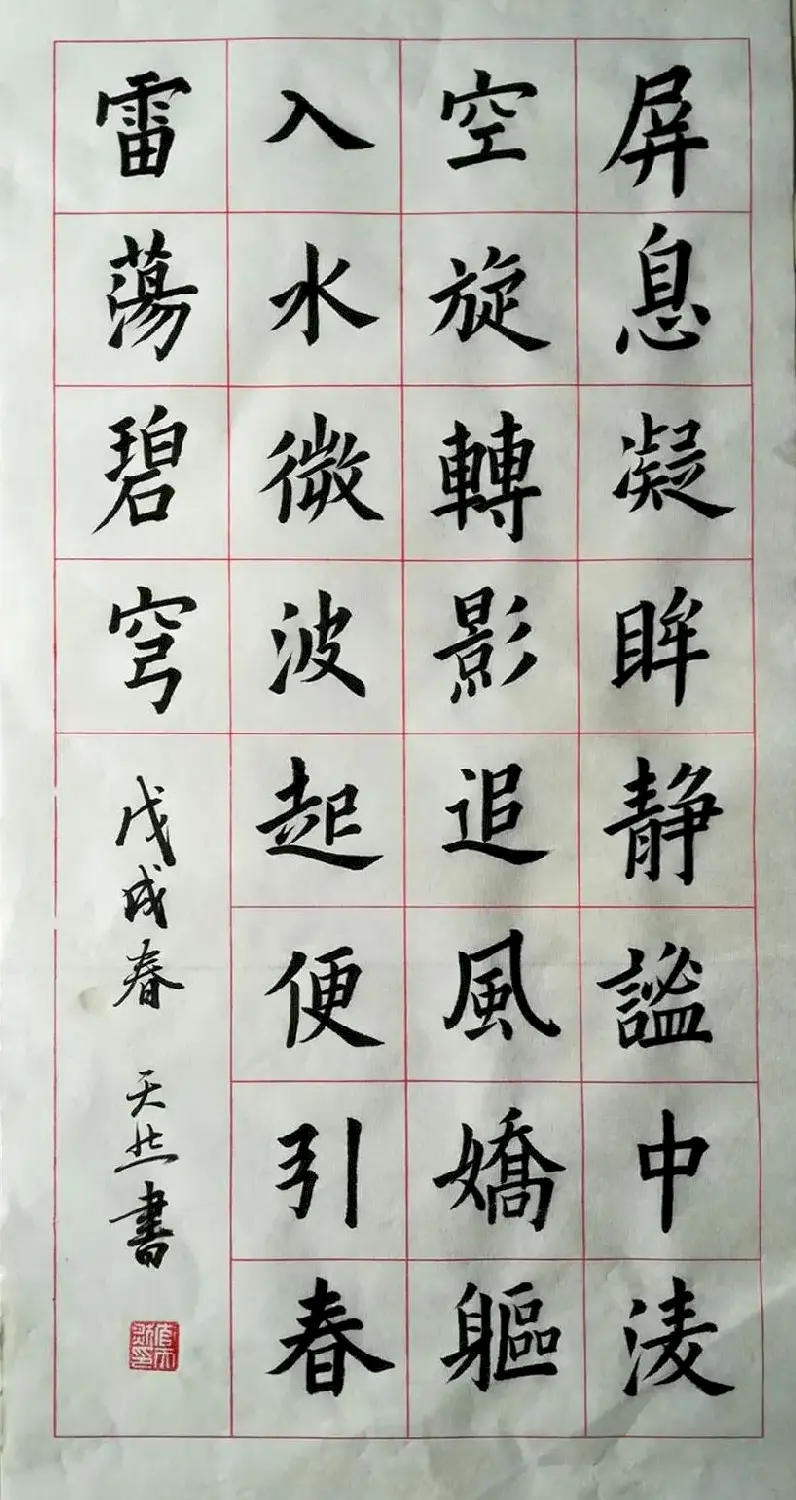 屏息凝眸静謐中淩
空旋轉影追風嬌軀
入水微波起便引春
雷蕩碧穹
戊戌春 天
書